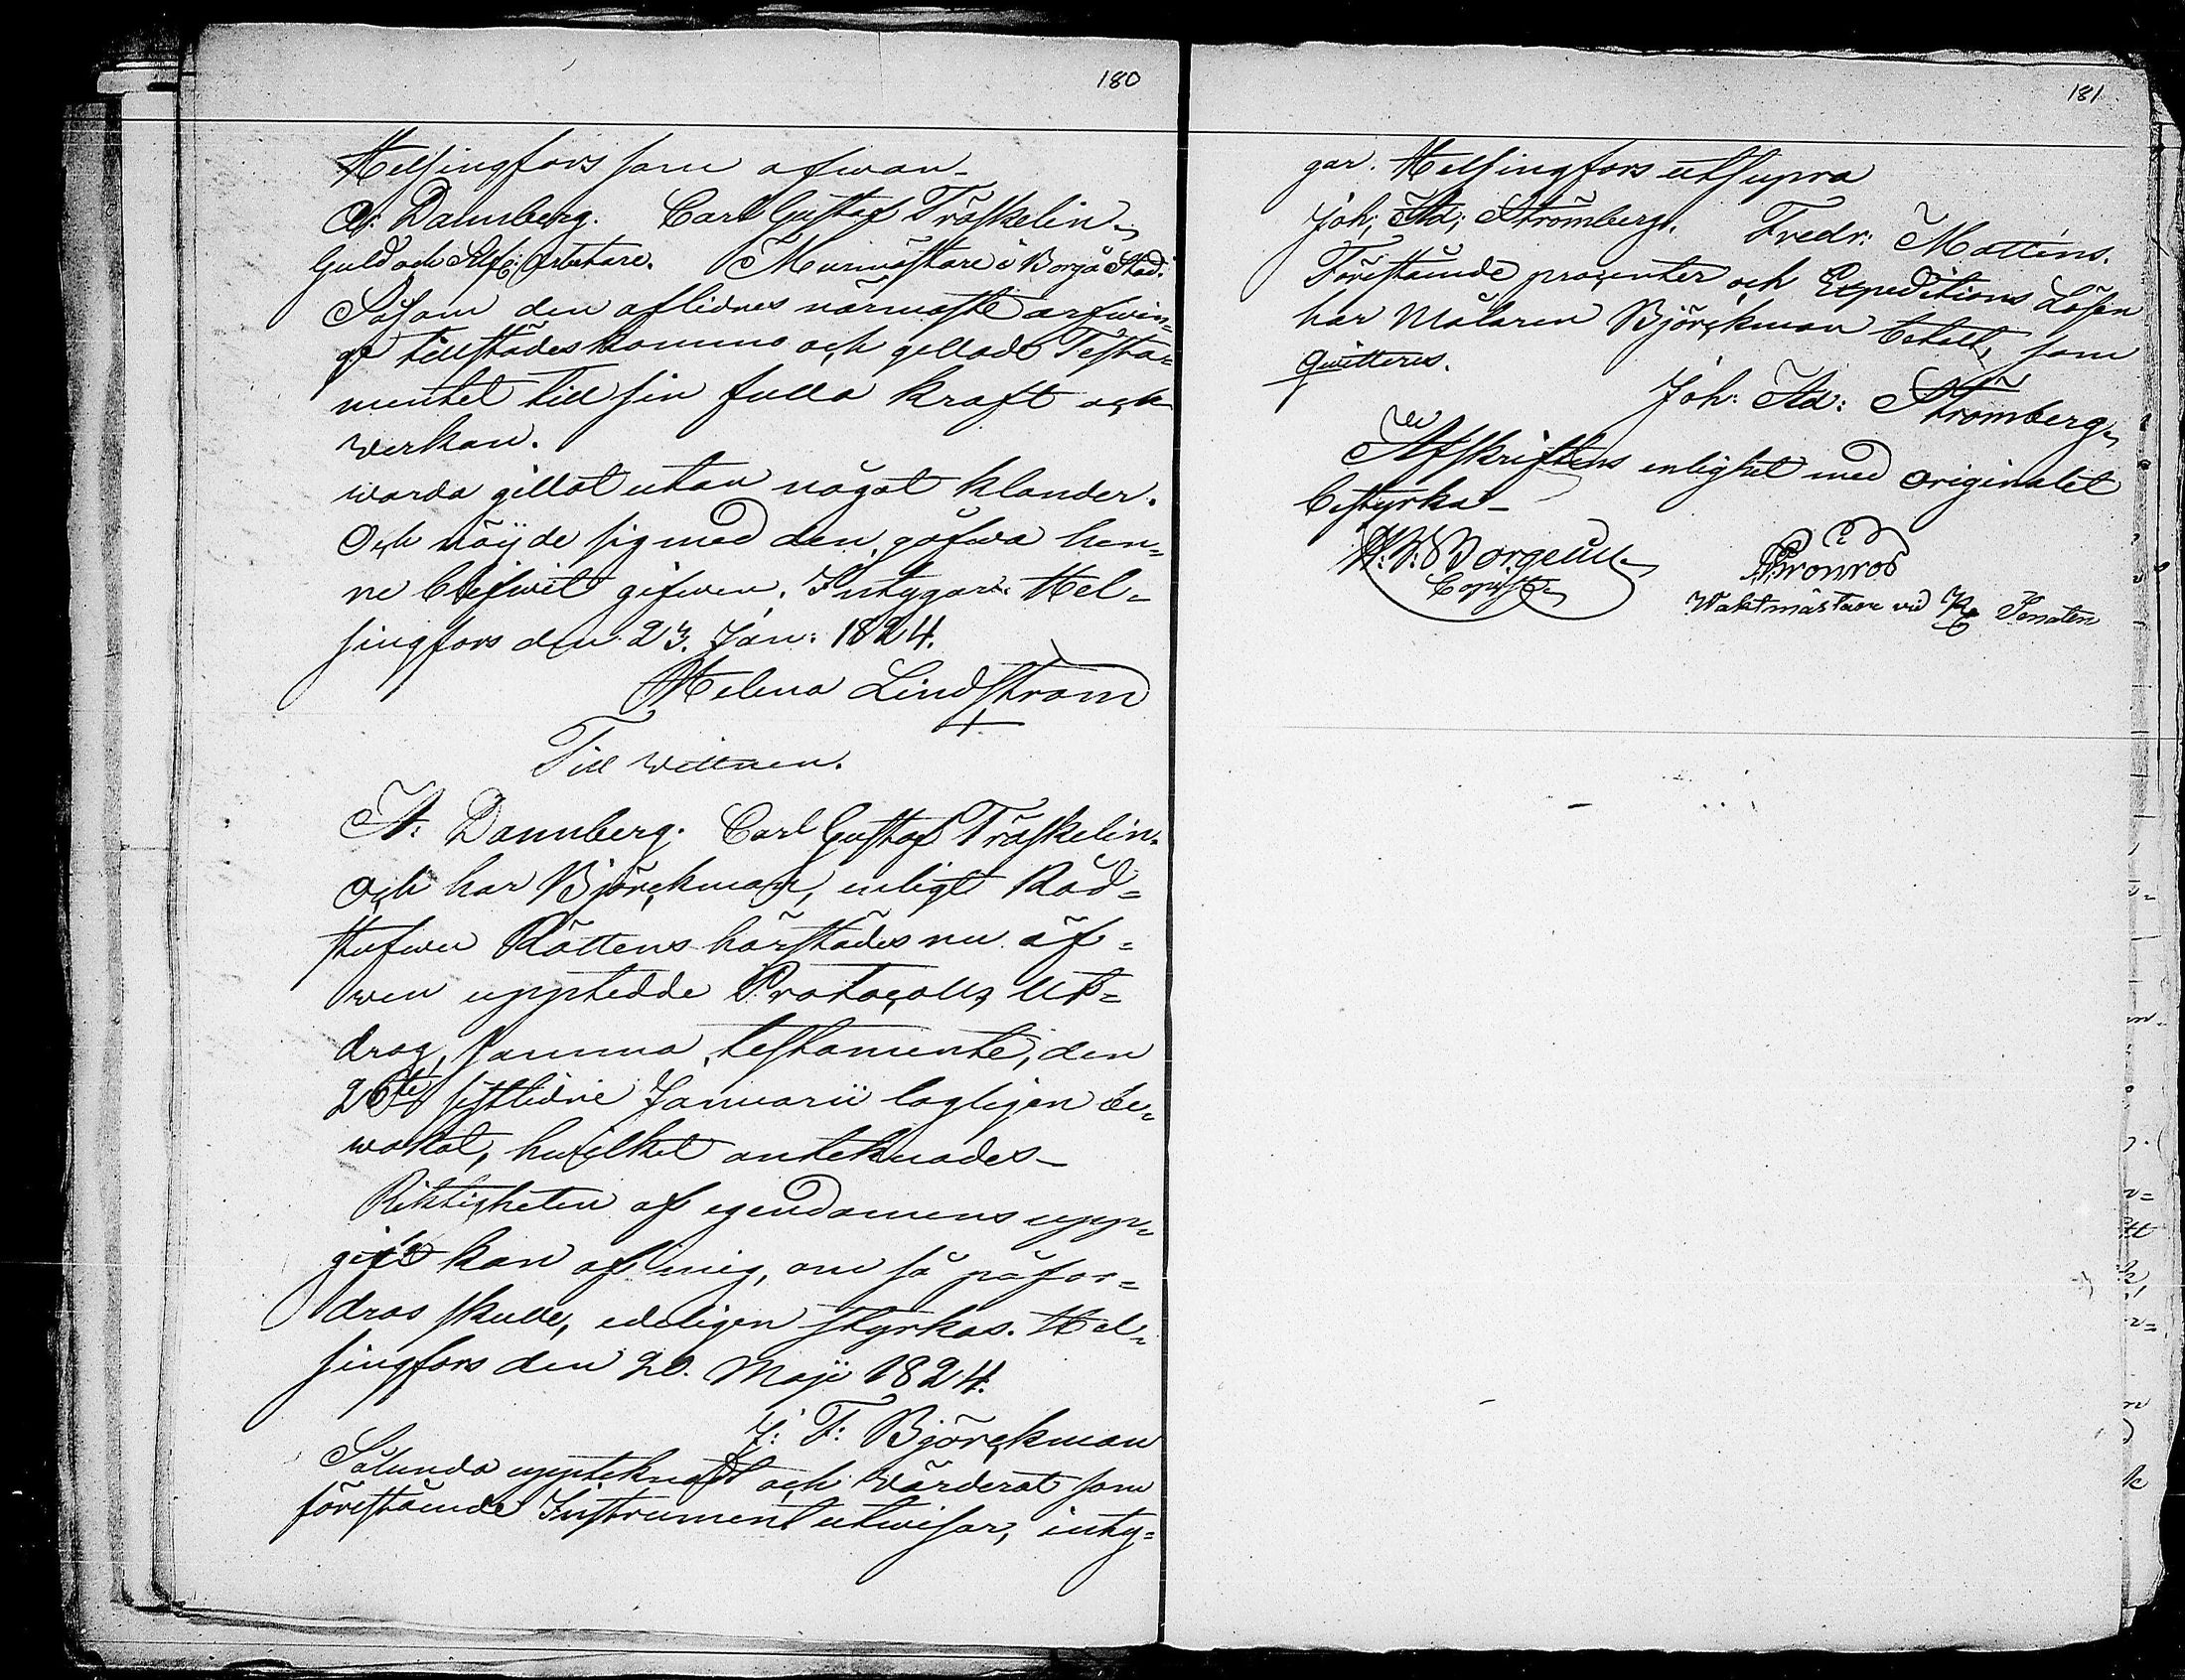 180
Helsingfors som ofwan.
A: Dannberg. Carl Gustaf Träskelin.
Guld och Silf: Arbetare. Murmästare i Borgå Stad.
Såsom den aflidnes närmaste arfwin=
ge tillstädeskomne och gillade Testa=
mentet till sin fulla kraft och
werkan.
warda gillat utan något klander.
Och nöijde sig med den gåfwa hen=
ne blifwit gifwen. Intygar. Hel=
singfors den 23. Jan: 1824.
Helena Lindström
+
Till wittnen.
A: Dannberg. Carl Gustaf Träskelin.
Och har Björckman, enligt Råd=
stufwu Rättens härstädes nu äf=
wen upptedde Protocolls Ut=
drag, samma testamente, den
26te sistlidne Januarii lagligen be=
wakat, hwilket anteknades_
Riktigheten af egendomens upp=
gift kan af mig, om så påfor=
dras skulle, edeligen styrkas. Hel=
singfors den 20. Maji 1824.
J: F: Björckman
Sålunda uppteknadt och wärderat som
förestående Instrument utwisar, inty=
181
gar. Helsingfors utsupra
Joh: Ad: Strömberg. Fredr: Matténs.
Förestående procenter och Expeditions Lösen
har Målaren Björckman betalt, som
quitteres.
Joh: Ad: Strömberg
Afskriftens enlighet med originalet
bestyrka_
Borgelin
Copist
Kronros
Waktmästare vid Senaten